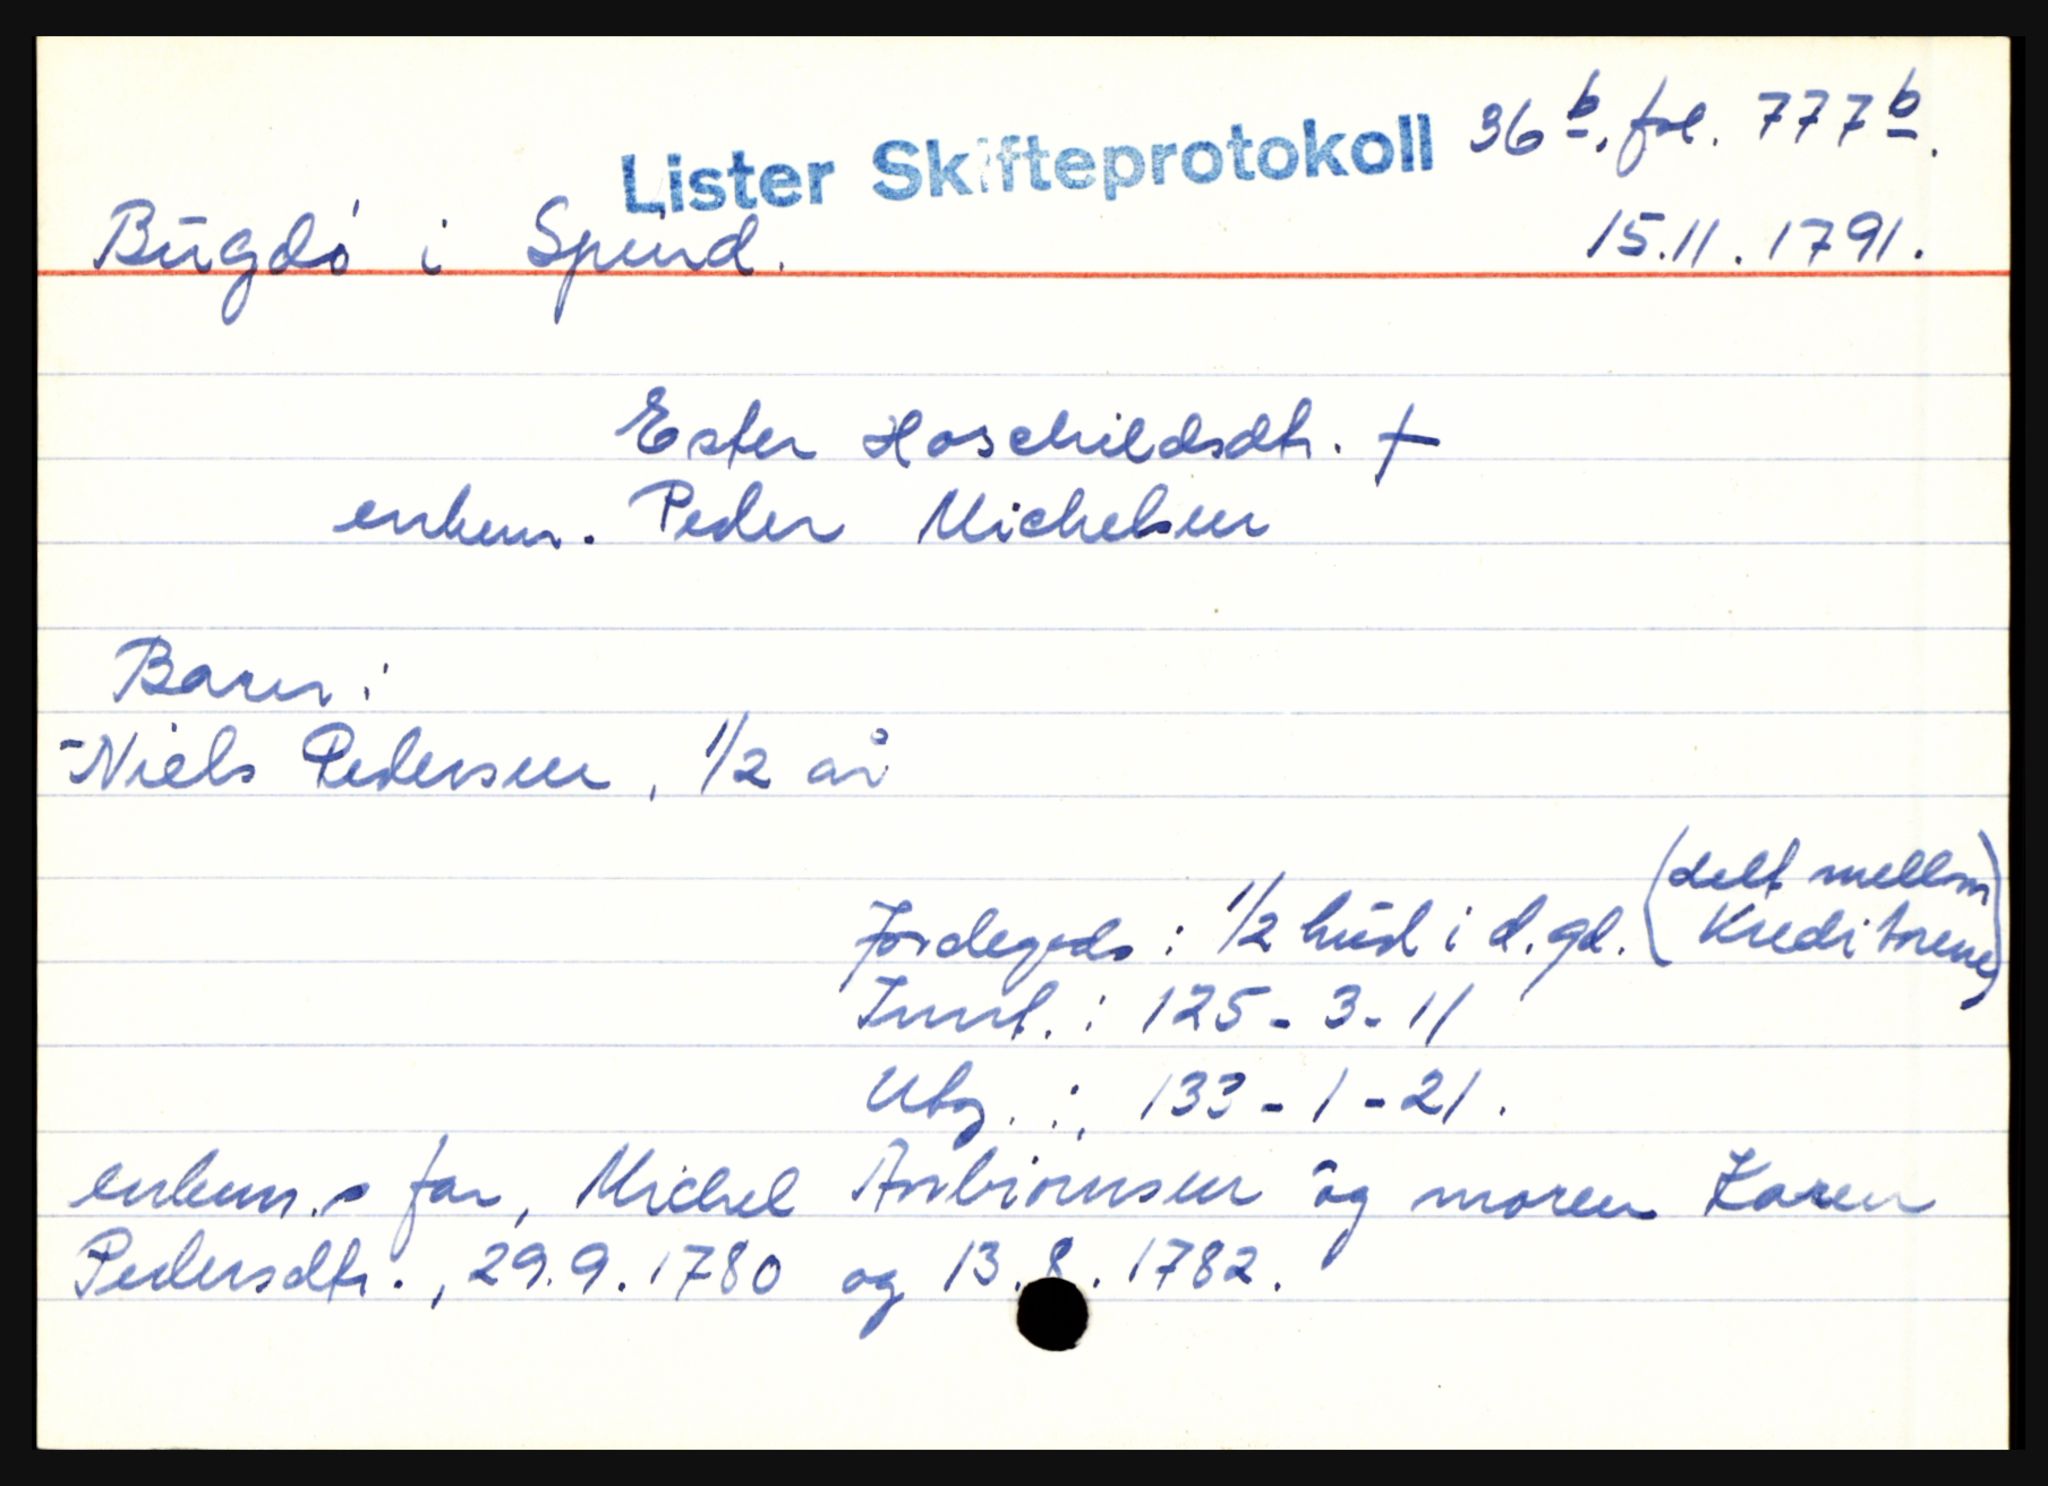 Lister Skifteprotokoll 36 b, fol. 777 b.
Bugdø i Spind. 15.11.1791.
Ester Hoschildsdtr. †
enkem. Peder Michelsen
Barn:
-Niels Pedersen, 1/2 år
Jordegods: 1/2 hud i d. gd. (delt mellom
Kreditorene)
Innt.: 125-3-11
Utg.: 133-1-21.
enkem.s far, Michel Anbiørnsen og moren Karen
Pedersdtr., 29.9.1780 og 13.8.1782.